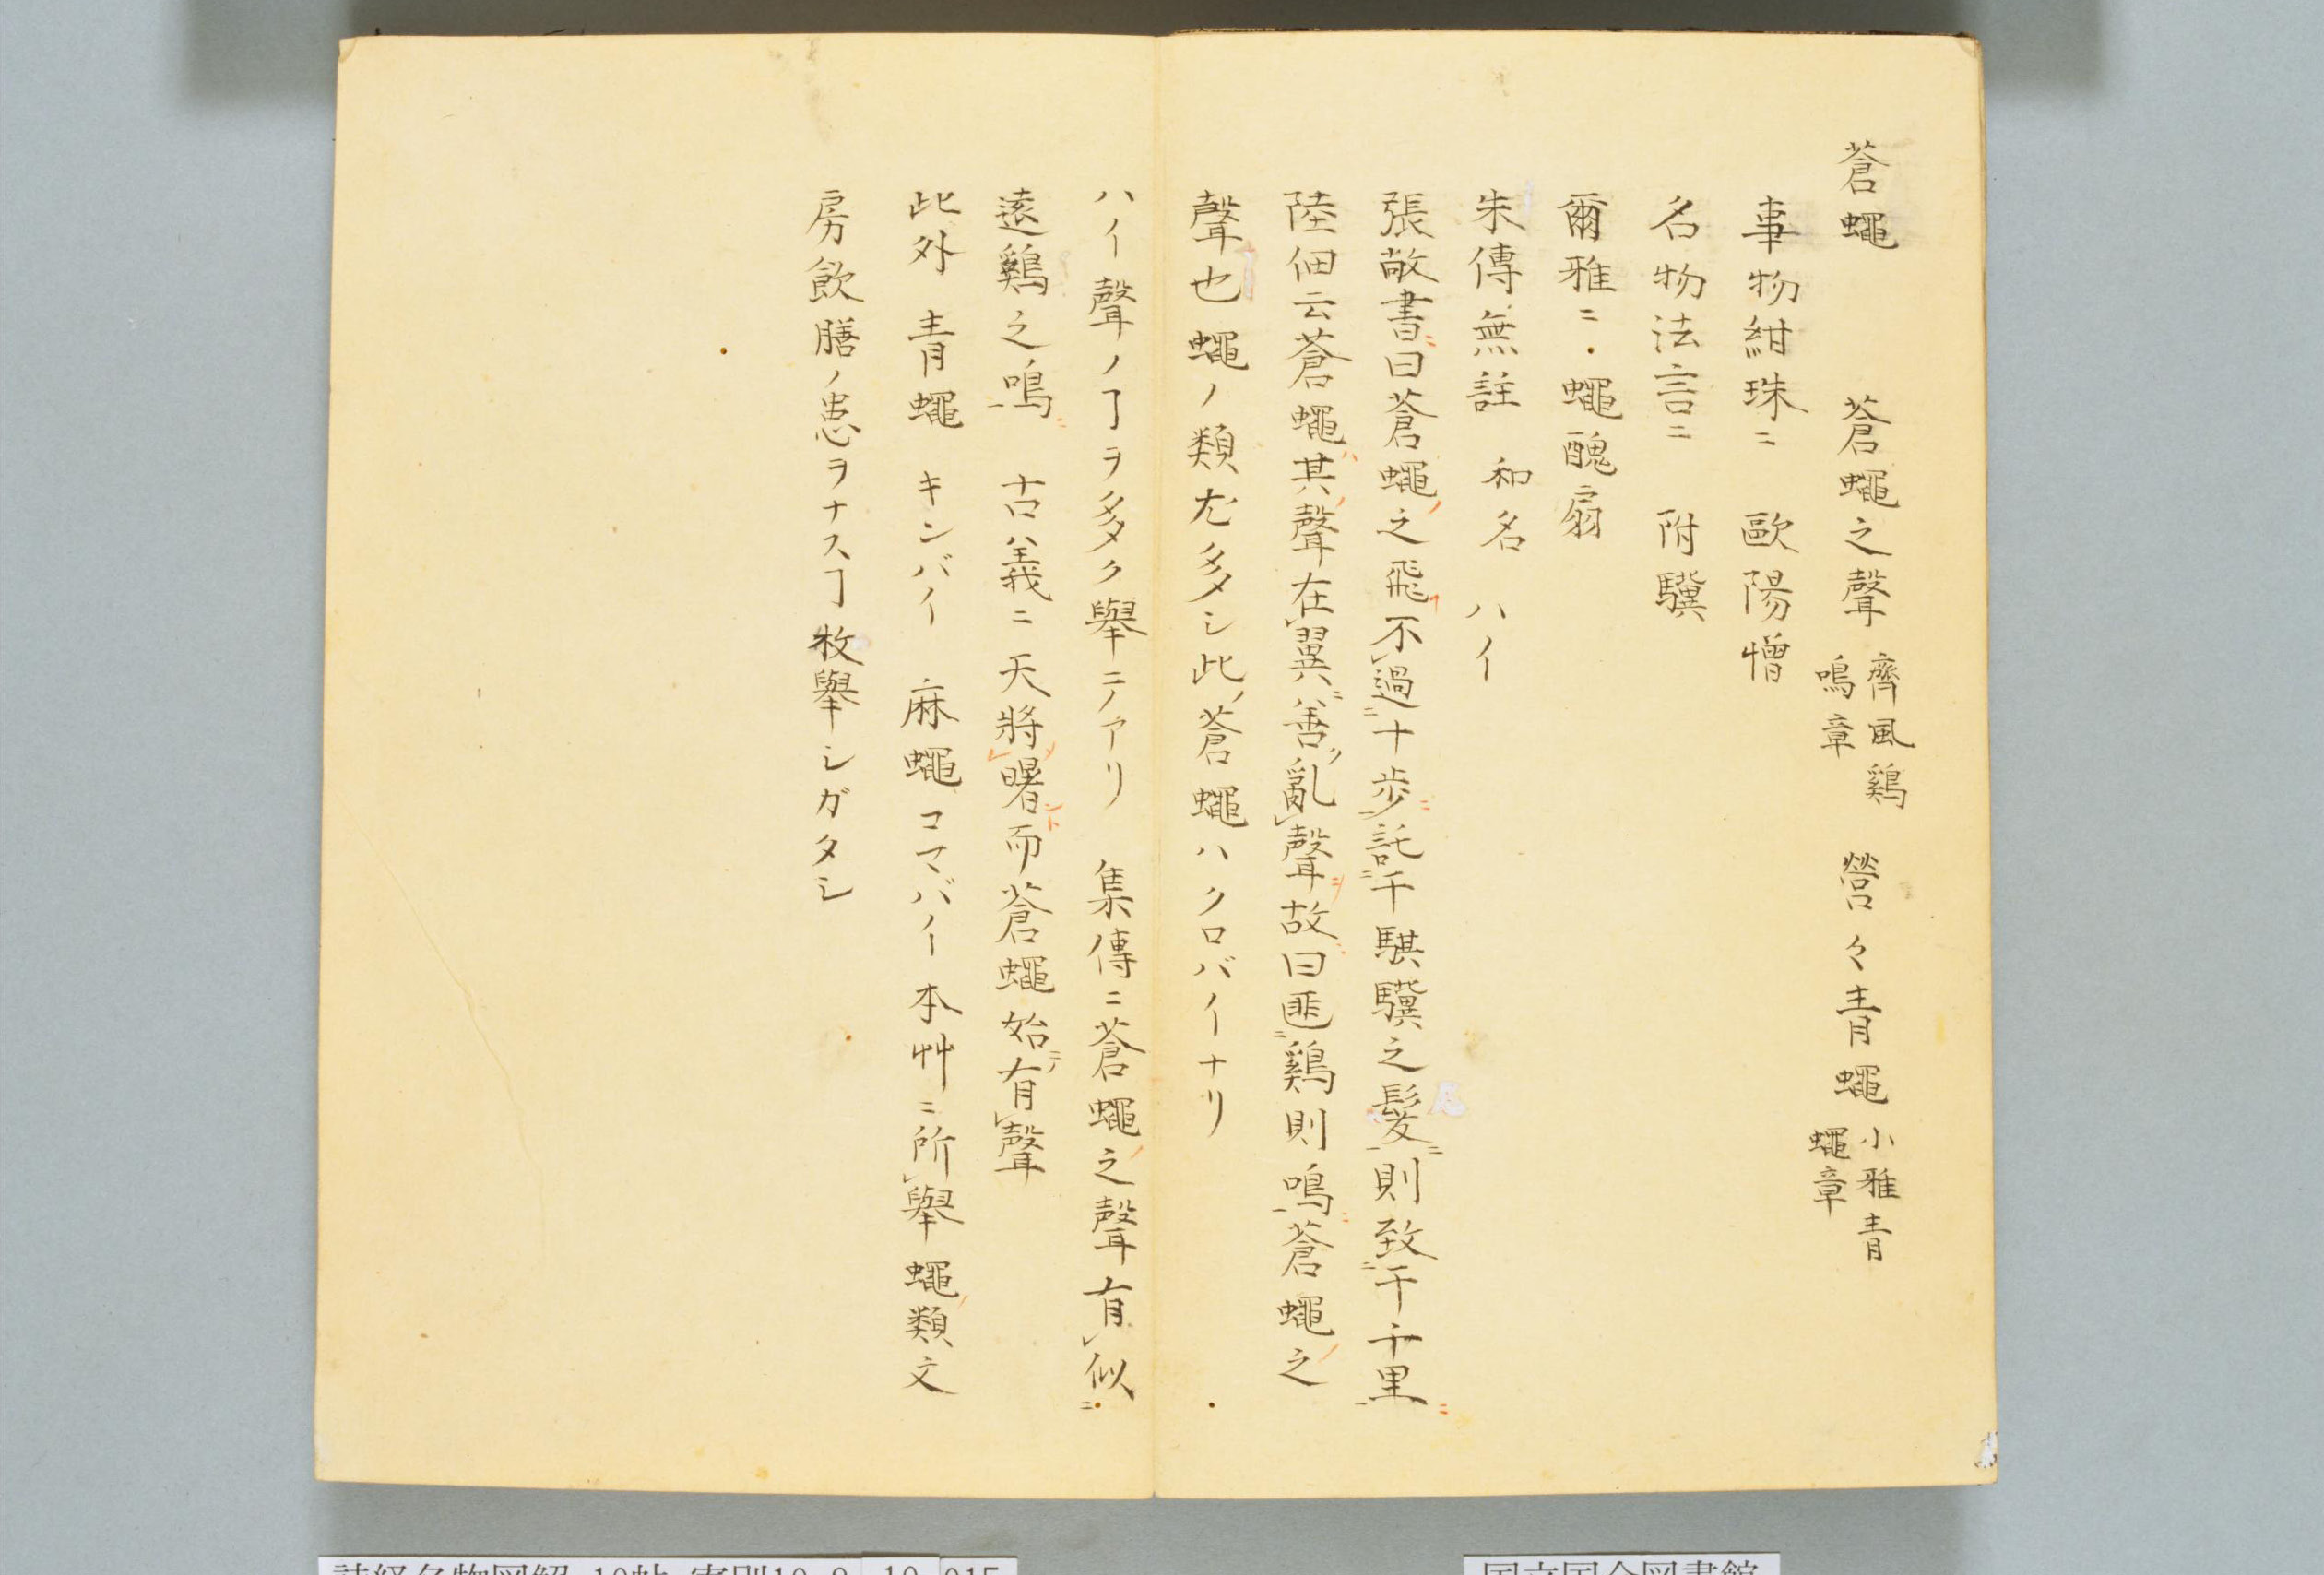 蒼蠅　蒼蠅之聲 齊風鷄鳴章　營々青蠅 小雅青蠅章
事物紺珠ニ　歐陽憎
名物法言ニ　附驥
爾雅ニ・蠅醜扇
朱傳無註　和名　ハイ
張敞書ニ曰蒼蠅ノ之飛フ不過十歩ニ託千騏驥之髮ニ則致千千里ニ
陸佃云蒼蠅ハ其ノ聲在翼ニ善ク亂聲ヲ故ニ曰匪鷄則鳴蒼蠅ノ之
聲也蠅ノ類尤多シ此ノ蒼蠅ハクロバイナリ
ハイ聲ノヿヲ多ク擧ニノアリ　集傳ニ蒼蠅ノ之聲有似
遠鷄之鳴ニ　古義ニ天將メ曙ント而蒼蠅始ニノ有聲
此外　青蠅　キンバイ　麻蠅　コマバイ　本艸ニ所擧蠅ノ類文
房飲膳ノ患ヲナスヿ枚擧シガタシ
国立国会図書館